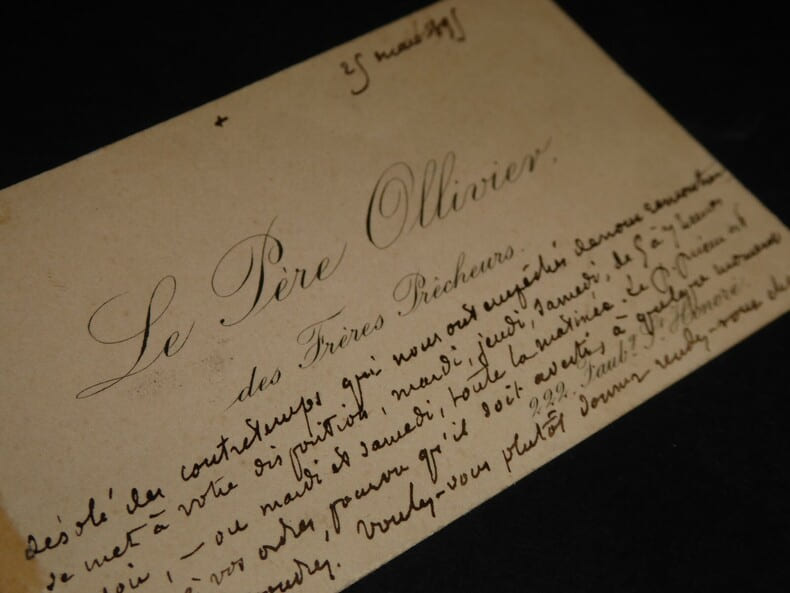 25 mars 1895
+
Le Père Ollivier.
des Frères Prêcheurs.
désolé des contretemps qui nous ont empêchés de nous rencontrer
se met à votre disposition, mardi, jeudi, samedi, de 5 à 7 heures
soir, – ou mardi et samedi, toute la matinée. Le P. est
à vos ordres, pourvu qu'il soit averti à quelque moment
222, Faubg. St. Honoré.
voudrez. Voulez-vous plutôt donner rendez-vous chez